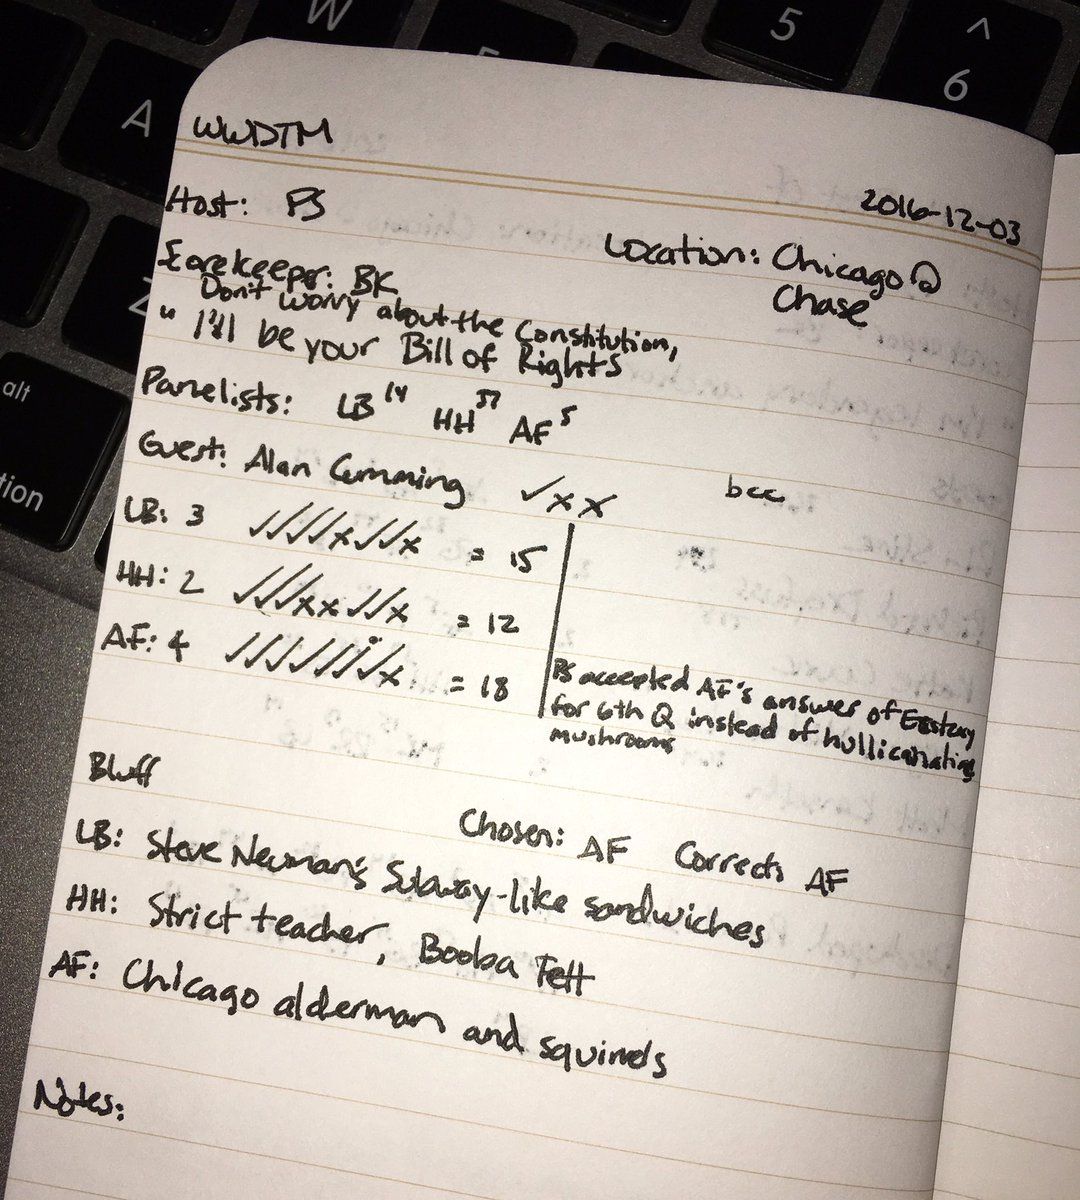 W
5
^
6
A
Z
alt
tion
WWDTM
2016-12-03
Host: PS
Location: Chicago @
Chase
Scorekeeper: BK
Don't worry about the Constitution,
" I'll be your Bill of Rights
Panelists: LB 14 HH 37 AF 5
Guest: Alan Cumming ✓xx bcc
LB: 3 ✓✓✓✓x✓✓x = 15
HH: 2 ✓✓✓xx✓✓x = 12
AF: 4 ✓✓✓✓✓✓✓x = 18
PS accepted AF's answer of Ecstasy
for 6th Q instead of hullicanating
mushrooms
Bluff
Chosen: AF Correct: AF
LB: Steve Neuman's Subway-like sandwiches
HH: Strict teacher, Booba Fett
AF: Chicago alderman and squirrels
Notes: